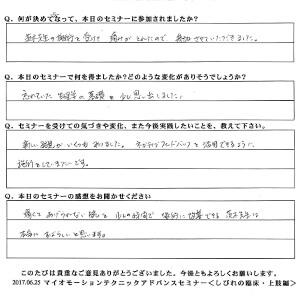 Q. 何が決めてなって、本日のセミナーに参加されましたか?
先生の施術を受け 痛みがとれたので、参加させていただきました。
Q. 本日のセミナーで何を得ましたか?どのような変化がありそうでしょうか?
忘れていた 生理学の基礎を少し思い出しました。
Q. セミナーを受けての気づきや変化、また今後実践したいことを、教えて下さい。
新しい発見がいくつもありました。ネガティブフィードバックを活用できるように、
施術をしていきたいです。
Q. 本日のセミナーの感想をお聞かせください
先生は
本当に すばらしいと思います。
このたびは貴重なご意見ありがとうございます。今後ともよろしくお願いします。
2017.06.25 マイオモーションテクニックアドバンスセミナー<しびれの臨床・上肢編>